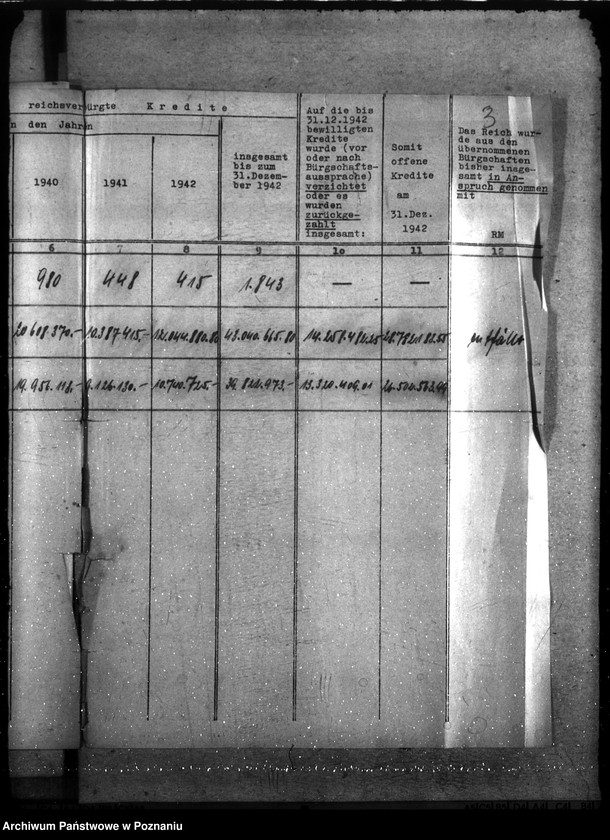 3
reichsverbürgte Kredite
n den Jahren
1940
1941
1942
insgesamt
bis zum
31.Dezem-
ber 1942
Auf die bis
31.12.1942
bewilligten
Kredite
wurde (vor
oder nach
Bürgschafts-
aussprache)
verzichtet
oder es
wurden
zurückge-
zahlt
insgesamt:
Somit
offene
Kredite
am
31.Dez.
1942
Das Reich wur-
de aus den
übernommenen
Bürgschaften
bisher insge-
samt in An-
spruch genommen
mit
RM
6 7 8 9 10 11 12
980 448 415 1.843 — —
20 608 370.- 10.387 415,- 43.040.665.80 entfällt
19.956.113.- 10.740.725.- 39.822.973.- 13.320.409.01
Archiwum Państwowe w Poznaniu